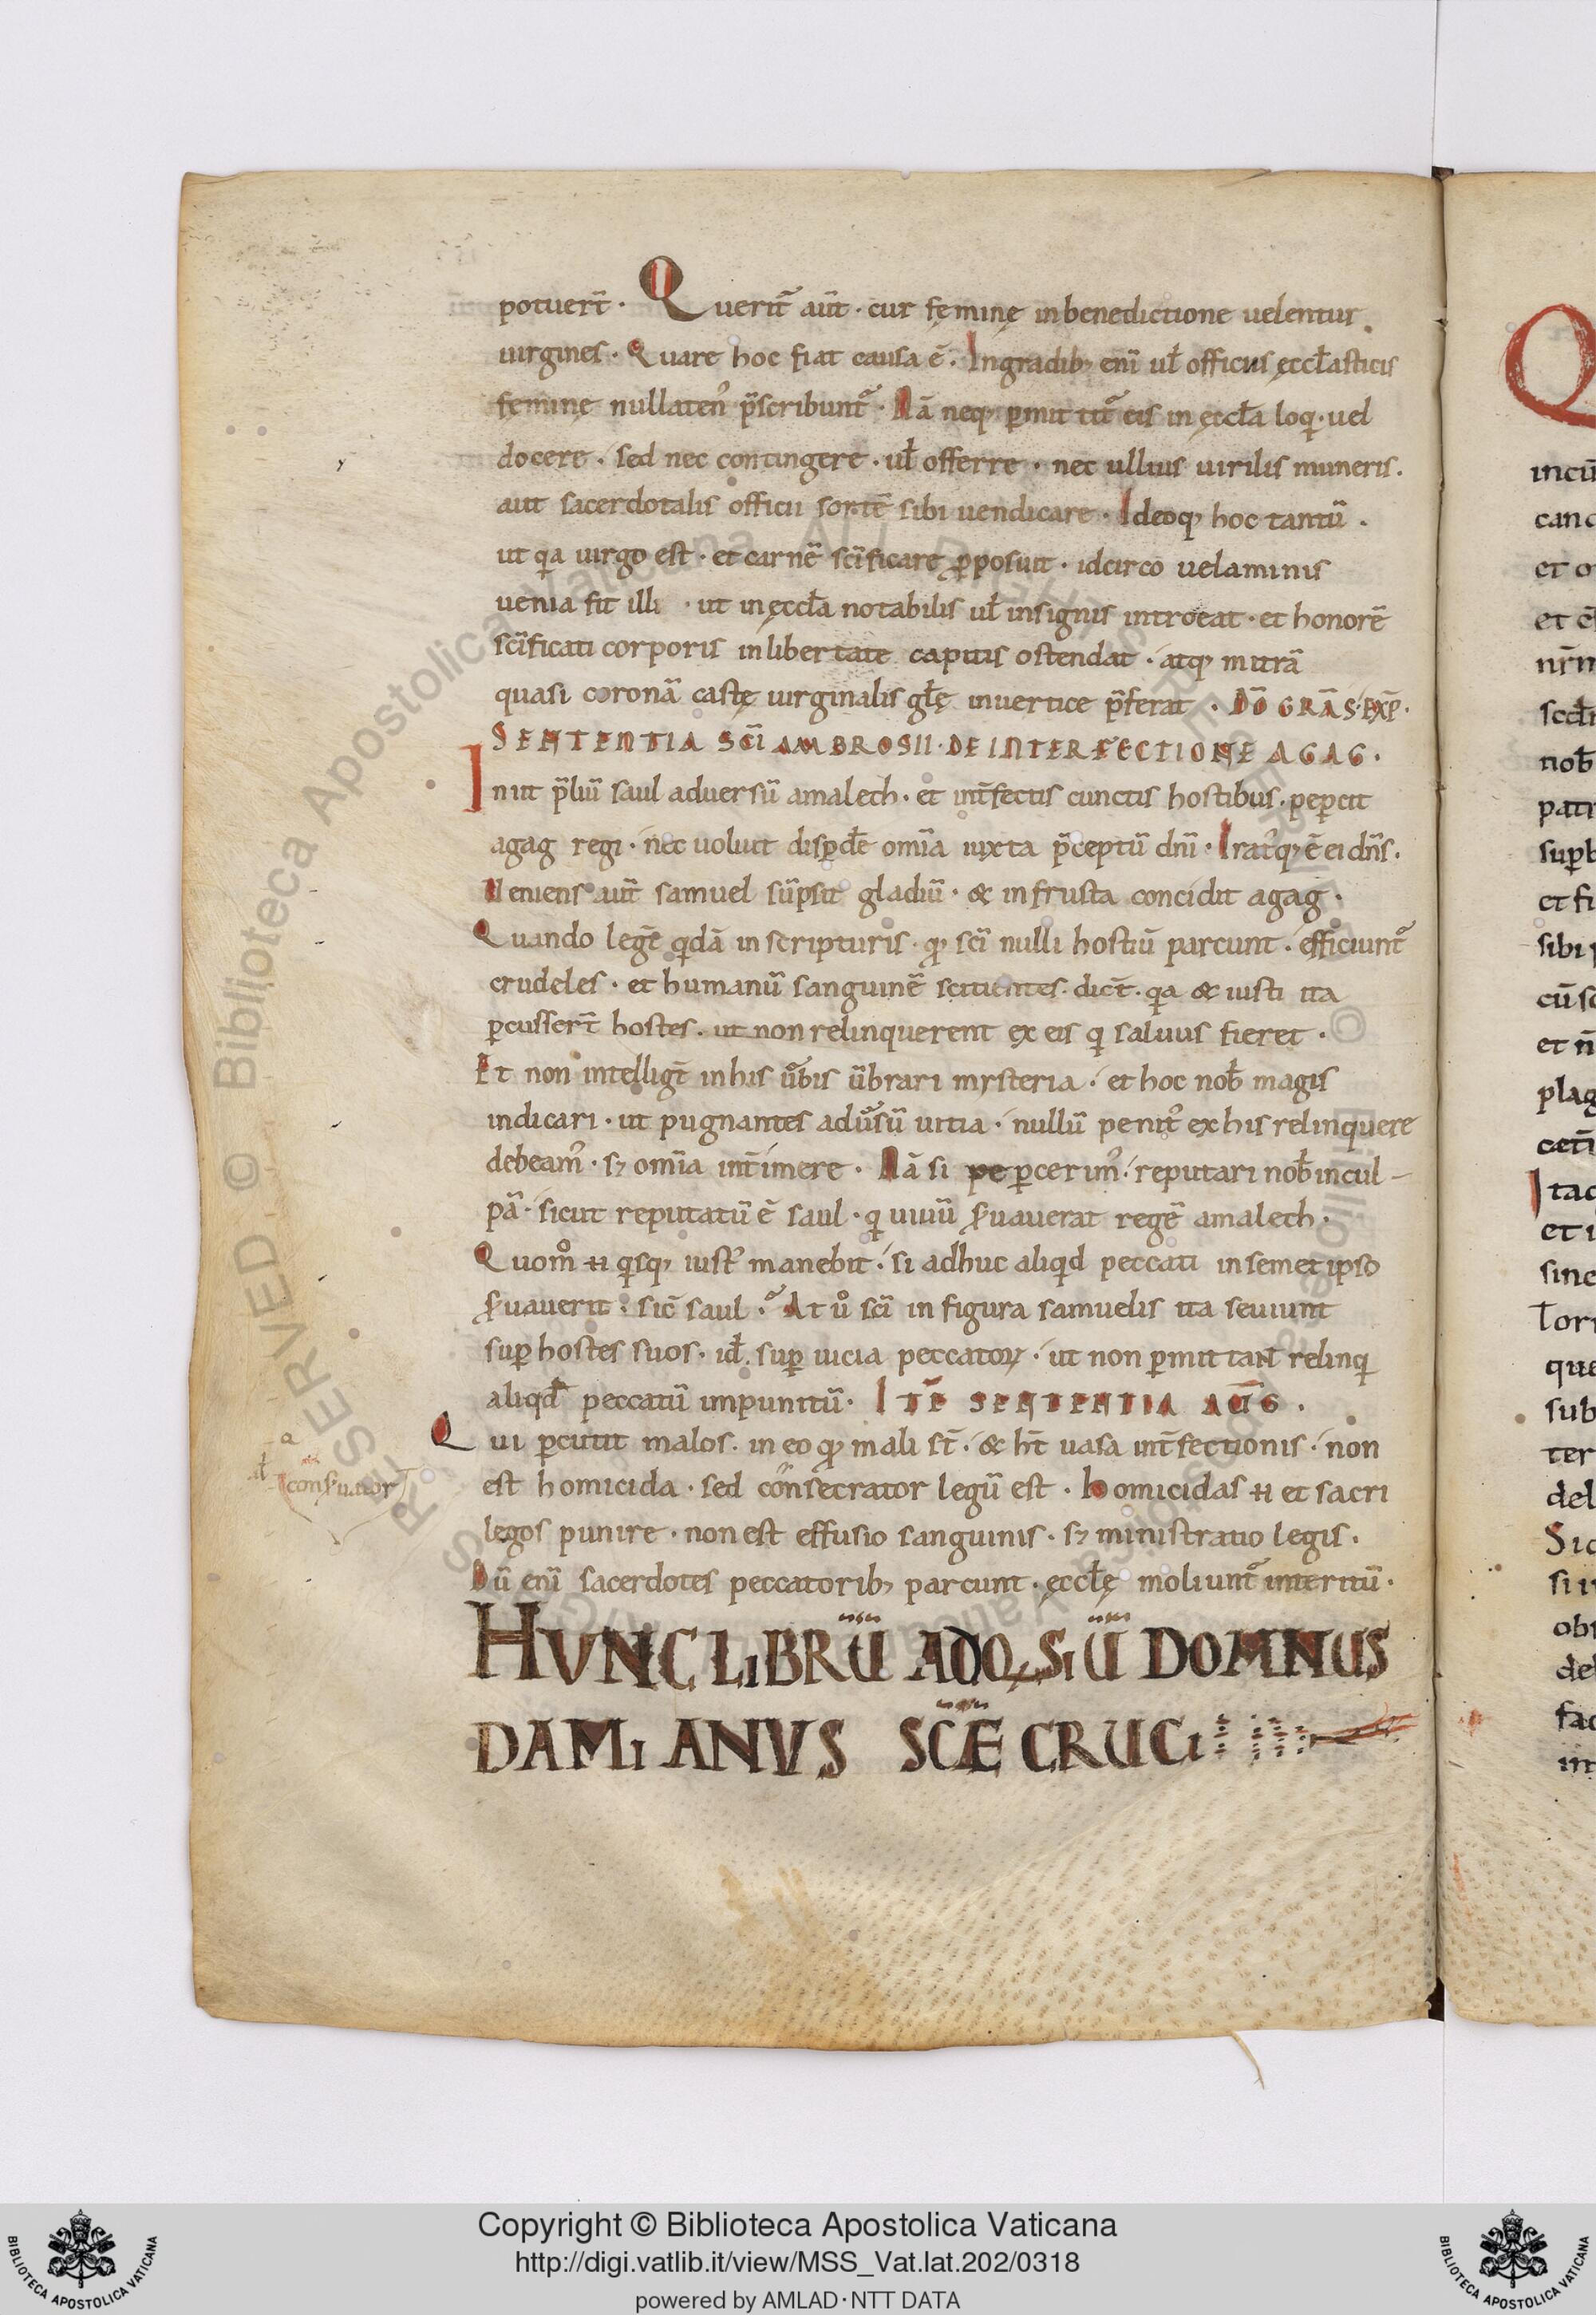 potuer̄t · Querit̄ aūt · cur fęminę in benedictione uelentur
uirgines · Quare hoc fiat causa ē . In gradib; enī ul̄ officiis ęccl̄asticis
femine nullaten᾽ p̄scribunt̄ · Nā neq; ꝑmittit̄ eis in ęccl̄a loq · uel
docere · sed nec contingere · ul̄ offerre · nec ullius uirilis muneris .
aut sacerdotalis officii sortē sibi uendicare · Ideoq; hoc tantū .
ut qa uirgo est · et carnē sc̄ificare ꝓposuit · idcirco uelaminis
uenia fit illi · ut in ęccl̄a notabilis ul̄ insignis introeat · et honorē
sc̄ificati corporis in libertate capitis ostendat · atq; mitrā
quasi coronā castę uirginalis gl̄ę in uertice p̄ferat · DŌ GRĀS · EXP̄ ·
SENTENTIA SC̄I AMBROSII · DE INTERFECTIONE AGAG ·
Iniit p̄liū saul aduersū amalech · et int̄fectis cunctis hostibus · peꝑcit
agag regi · nec uoluit disꝑdē om̄ia iuxta p̄ceptū dn̄i · Irat᾽q; ē ei dn̄s ·
Ueniens aūt samuel sūpsit gladiū · & in frusta concidit agag ·
Quando legē qdā in scripturis · qđ sc̄i nulli hostiū parcunt · efficiunt̄
crudeles · et humanū sanguinē scituentes · dict̄ · qa & iusti ita
ꝑcusser̄t hostes · ut non relinquerent ex eis q saluus fieret ·
Et non intelligt̄ in his ūbis ūbrari mysteria · et hoc nob̄ magis
indicari · ut pugnantes adūsū uitia · nullū penit᾽ ex his relinquere
debeam᾽ · s; om̄ia int̄imere · Nā si pe ꝑcerim᾽ · reputari nob̄ in cul-
pā · sicut reputatū ē saul · q uiuū ẜuauerat regē amalech ·
Quom̊ n̄ qsq; iust᾽ manebit · si adhuc aliqd peccati in semetipso
ẜuauerit · sic̄ saul · At ů sc̄i in figura samuelis ita seuiunt
suꝑ hostes suos · id̄ . suꝑ uicia peccatoꝝ · ut non ꝑmittant relinq
aliqd peccatū impunitū · ITĒ SENTENTIA AŪG ·
Qui ꝑcutit malos · in eo qđ mali st̄ · & ht̄ uasa int̄fectionis · non
est homicida · sed consecrator legū est · Homicidas n̄ et sacri
legos punire · non est effusio sanguinis · s; ministratio legis ·
Dū enī sacerdotes peccatorib; parcunt · ęccl̄ę moliunt̄ interitū ·
al̄
conẜuator
HUNC LIBRŪ ADQSIŪ DOMNUS
DAMIANUS SCE CRUCI
Copyright © Biblioteca Apostolica Vaticana
http://digi.vatlib.it/view/MSS_Vat.lat.202/0318
powered by AMLAD·NTT DATA
BIBLIOTECA APOSTOLICA VATICANA
BIBLIOTECA APOSTOLICA VATICANA